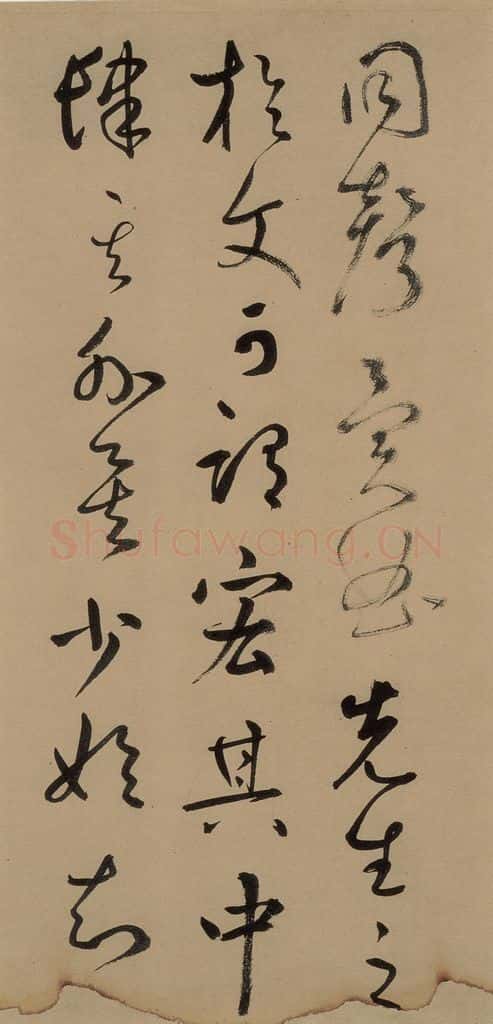 同異曲先生之
於文可謂宏其中
肆其外矣少始知
Shufawang.CN